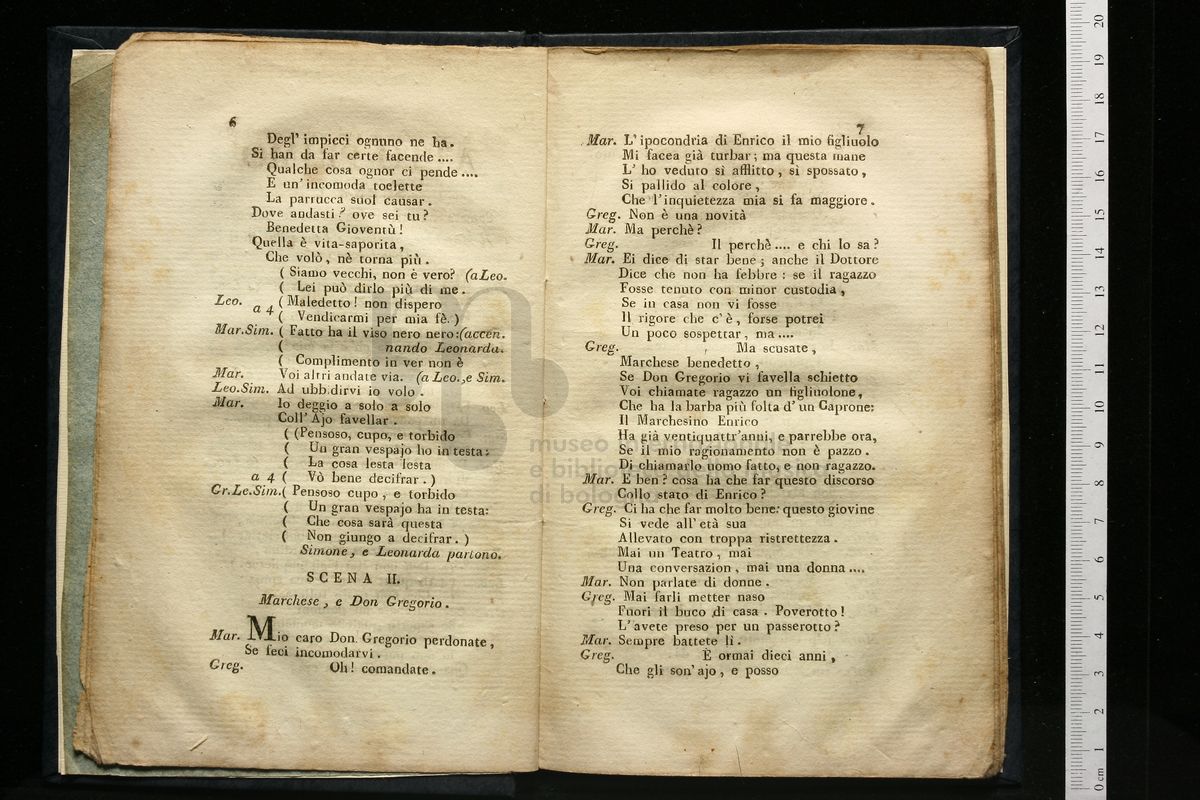 6
Degl' impicci ognuno ne ha.
Si han da far certe facende ....
Qualche cosa ognor ci pende ....
E un' incomoda toelette
La parrucca suol causar.
Dove andasti? ove sei tu?
Benedetta Gioventù!
Quella è vita-saporita,
Che volò, nè torna più.
( Siamo vecchi, non è vero? (a Leo.
( Lei può dirlo più di me.
Leo. a 4 ( Maledetto! non dispero
( Vendicarmi per mia fè. )
Mar. Sim. ( Fatto ha il viso nero nero: (accen.
( nando Leonarda.
( Complimento in ver non è
Mar. Voi altri andate via. (a Leo., e Sim.
Leo. Sim. Ad ubbidirvi io volo.
Mar. Io deggio a solo a solo
Coll' Ajo favellar.
( (Pensoso, cupo, e torbido
( Un gran vespajo ho in testa:
( La cosa lesta lesta
a 4 ( Vò bene decifrar. )
Gr. Le. Sim. ( Pensoso cupo, e torbido
( Un gran vespajo ha in testa:
( Che cosa sarà questa
( Non giungo a decifrar. )
Simone, e Leonarda partono.
SCENA II.
Marchese, e Don Gregorio.
Mar. Mio caro Don Gregorio perdonate,
Se feci incomodarvi.
Greg. Oh! comandate.
7
Mar. L' ipocondria di Enrico il mio figliuolo
Mi facea già turbar; ma questa mane
L' ho veduto sì afflitto, sì spossato,
Si pallido al colore,
Che l'inquietezza mia si fa maggiore.
Greg. Non è una novità
Mar. Ma perchè?
Greg. Il perchè .... e chi lo sa?
Mar. Ei dice di star bene; anche il Dottore
Dice che non ha febbre: se il ragazzo
Fosse tenuto con minor custodia,
Se in casa non vi fosse
Il rigore che c'è, forse potrei
Un poco sospettar, ma ....
Greg. Ma scusate,
Marchese benedetto,
Se Don Gregorio vi favella schietto
Voi chiamate ragazzo un figliuolone,
Che ha la barba più folta d' un Caprone:
Il Marchesino Enrico
Ha già ventiquattr'anni, e parrebbe ora,
Se il mio ragionamento non è pazzo.
Di chiamarlo uomo fatto, e non ragazzo.
Mar. E ben? cosa ha che far questo discorso
Collo stato di Enrico?
Greg. Ci ha che far molto bene: questo giovine
Si vede all' età sua
Allevato con troppa ristrettezza.
Mai un Teatro, mai
Una conversazion, mai una donna ....
Mar. Non parlate di donne.
Greg. Mai farli metter naso
Fuori il buco di casa. Poverotto!
L'avete preso per un passerotto?
Mar. Sempre battete lì.
Greg. È ormai dieci anni,
Che gli son' ajo, e posso
museo
e biblio
di bolo
0 cm 1 2 3 4 5 6 7 8 9 10 11 12 13 14 15 16 17 18 19 20